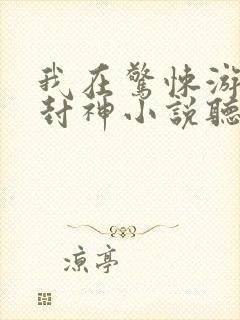 我在驚悚游
封神小說聽
涼亭